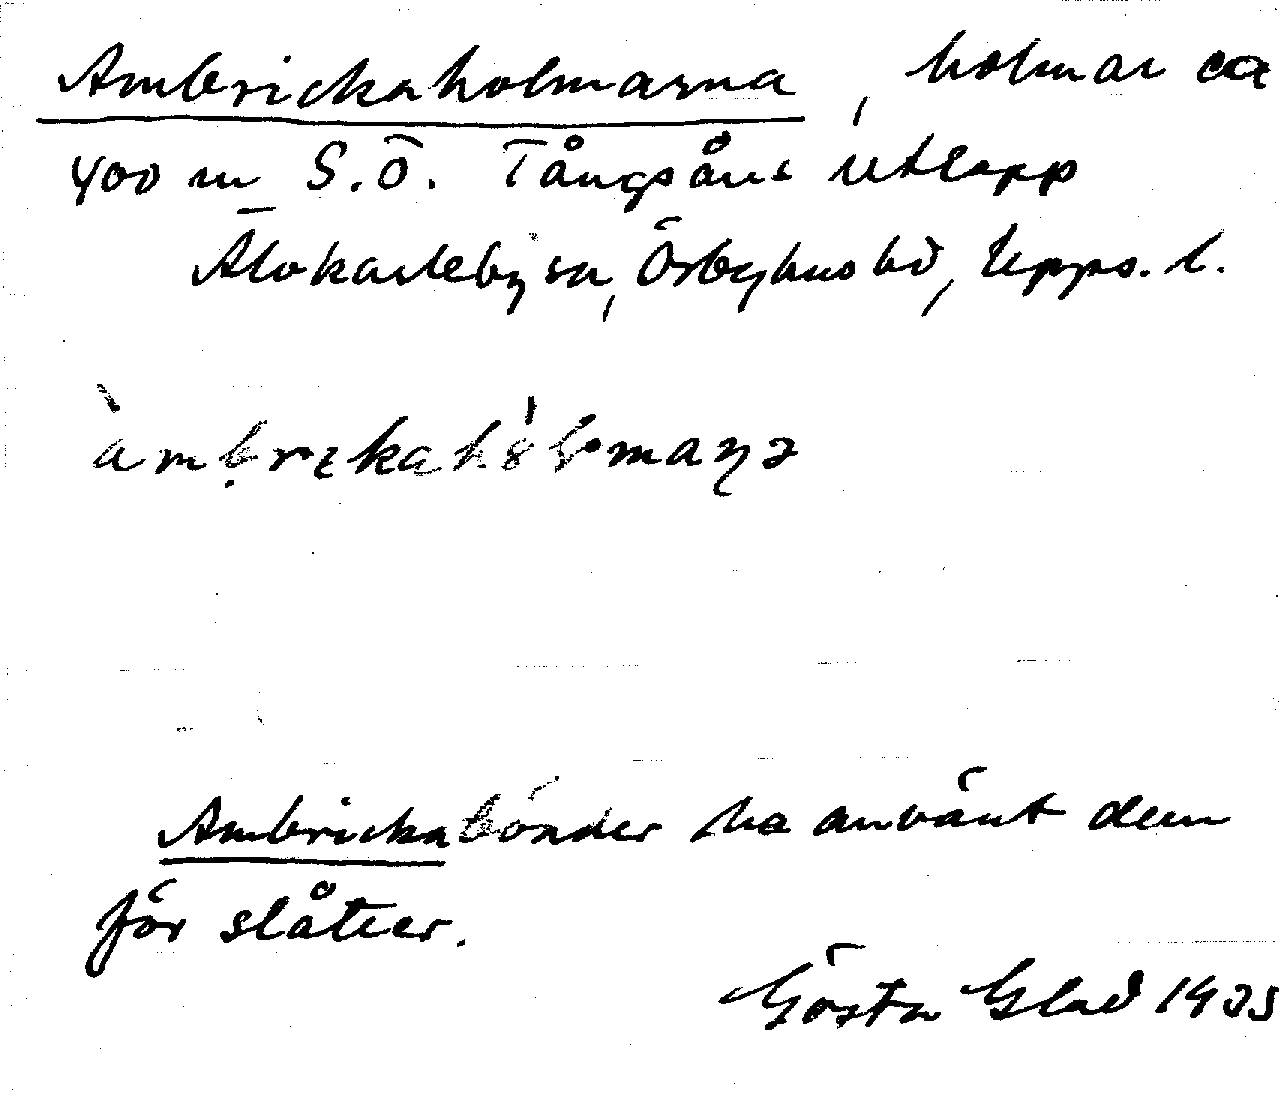 Ambrickaholmarna, holmar ca
400 m S.Ö. Tångsåns utlopp
Älvkarleby sn, Örbyhus hd, Upps. l.
àmbrɩkahólmaṇa
Ambrickabönder ha använt dem
för slåtter.
Gösta Glad 1935